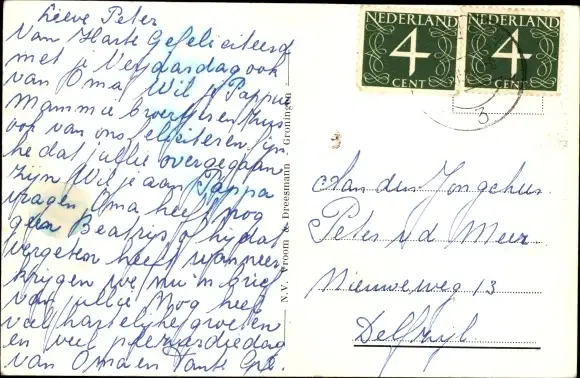 Lieve Peter
Van Harte Gefeliciteerd
met je Verjaardag ook
van Oma Wil je Pappie
Mammie broertje en zus
ook van ons feliciteren fijn
he dat jullie overgegaan
zijn Wil je aan Pappa
vragen Oma heeft nog
geen Beatrijs of hij dat
vergeten heeft wanneer
krijgen we nu 'n brief
van jullie Nog heel
veel hartelijke groeten
en veel plezier
van Oma en Tante
NEDERLAND
4
CENT
NEDERLAND
4
CENT
3
N.V. Vroom & Dreesmann - Groningen
Aan den Jongeheer
Peter v d Meer
Nieuweweg 13
Delfzijl